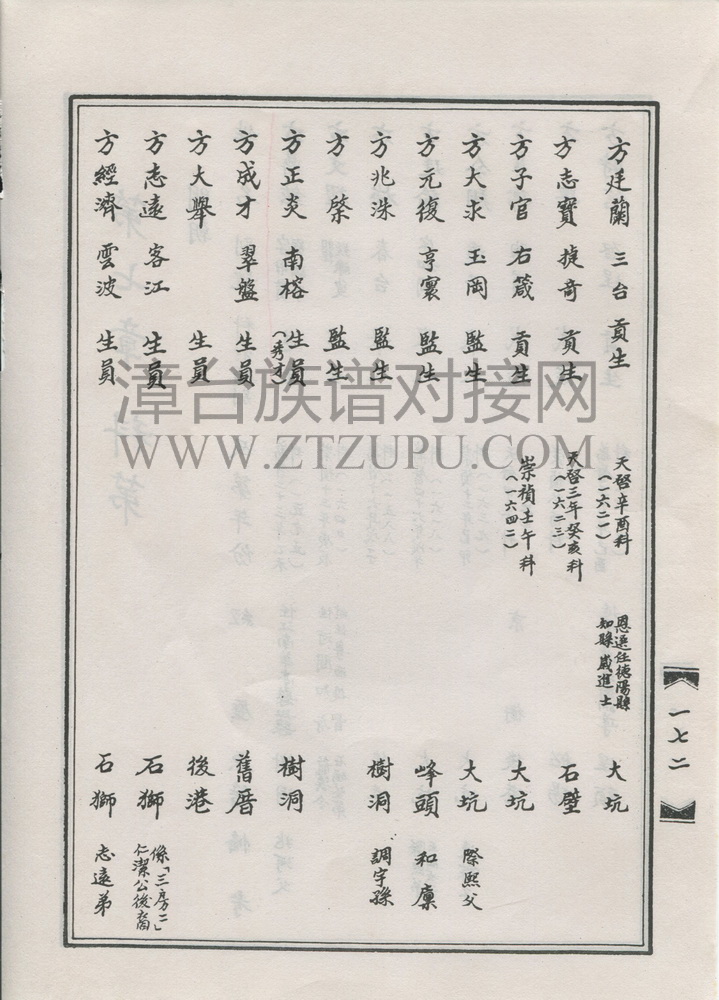 方廷蘭 三台 貢生 天啓辛酉科(一六二一) 恩選任德陽縣知縣歲進士 大坑
方志寶 捷奇 貢生 天啓三年癸亥科(一六二三) 石壁
方子官 右箴 貢生 崇禎壬午科(一六四二) 大坑
方大求 玉岡 監生 大坑 際熙父
方元復 亨寰 監生 峰頭 和廩
方兆洙 監生 樹洞 調宇孫
方棨 監生
方正炎 南榕 生員(秀才) 樹洞
方成才 翠盤 生員 舊厝
方大舉 生員 後港
方志遠 客江 生員 石獅 係「三房二」仁潔公後裔
方經濟 雲波 生員 石獅 志遠弟
一七二
漳台族谱对接网
WWW.ZTZUPU.COM